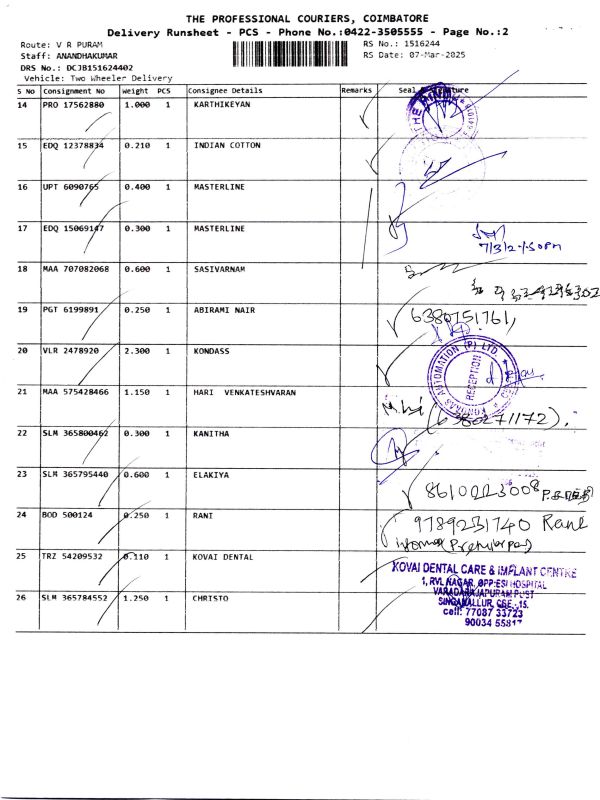 THE PROFESSIONAL COURIERS, COIMBATORE
Delivery Runsheet - PCS - Phone No.:0422-3505555 - Page No.:2
Route: V R PURAM RS No.: 1516244
Staff: ANANDHAKUMAR RS Date: 07-Mar-2025
DRS No.: DCJB151624402
Vehicle: Two Wheeler Delivery
S No Consignment No Weight PCS Consignee Details Remarks Seal & Signature
14 PRO 17562880 1.000 1 KARTHIKEYAN
15 EDQ 12378834 0.210 1 INDIAN COTTON
16 UPT 6090765 0.400 1 MASTERLINE
17 EDQ 15069147 0.300 1 MASTERLINE
18 MAA 707082068 0.600 1 SASIVARNAM
19 PGT 6199891 0.250 1 ABIRAMI NAIR
6380751761,
20 VLR 2478920 2.300 1 KONDASS
AUTOMATION (P) LTD.
RECEPTION
21 MAA 575428466 1.150 1 HARI VENKATESHVARAN
(6380271172).
22 SLM 365800462 0.300 1 KANITHA
23 SLM 365795440 0.600 1 ELAKIYA
8610223008
24 BOD 500124 0.250 1 RANI
9789231740 Rani
25 TRZ 54209532 0.110 1 KOVAI DENTAL
KOVAI DENTAL CARE & IMPLANT CENTRE
1, RVL NAGAR, OPP:ESI HOSPITAL
VARADARAJAPURAM POST
SINGANALLUR, CBE -15.
cell: 77087 33723
90034 55817
26 SLM 365784552 1.250 1 CHRISTO